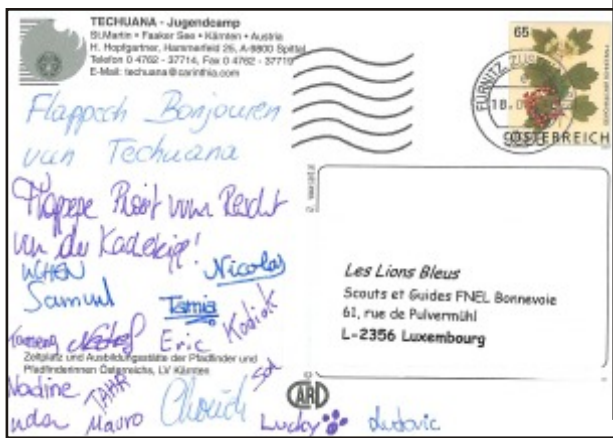 TECHUANA - Jugendcamp
St.Martin • Faaker See • Kärnten • Austria
H. Hopfgartner, Hammerfeld 25, A-9800 Spittal
Telefon 0 4762 - 37714, Fax 0 4762 - 37719
E-Mail: techuana@carinthia.com
65
FÜRNITZ
18.0
ÖSTERREICH
Flappech Bonjouren
vun Techuana
vum Rescht
vun der
Nicolas
Samuel
Tamia
Eric Kodiak
Zeltplatz und Ausbildungsstätte der Pfadfinder und
Pfadfinderinnen Österreichs, LV Kärnten
Nadine
TAHR
Sol
Mauro
Lucky
Ludovic
CARD
Les Lions Bleus
Scouts et Guides FNEL Bonnevoie
61, rue de Pulvermühl
L-2356 Luxembourg